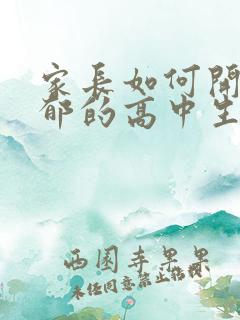 家長如何開
郁的高中生
西園寺果果
未经同意禁止轉載